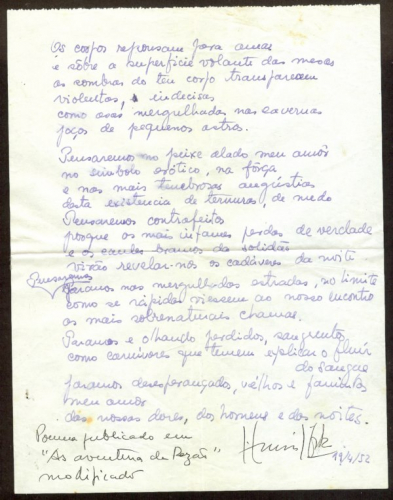 Os corpos repousam para amar
e sôbre a superficie volante das mesas
as sombras do teu corpo transparecem
violentas, indecisas
como asas mergulhadas nas cavernas
poços de pequenos astros.
Pensaremos no peixe alado meu amôr
no simbolo exótico, na fôrça
e nas mais tenebrosas angústias
desta existencia de ternuras, de medo
Pensaremos contrafeitos
porque os mais infames perdas de verdade
e os caules brancos da solidão
virão revelar-nos os cadáveres da noite
Pensaremos
Paramos nas mergulhadas estradas, no limite
como se rápidos viessem ao nosso encontro
os mais sobrenaturais chamas.
Paramos e olhando perdidos, sangrentos,
como carnivoros que temem explicar o fluir
do sangue
paramos desesperançados, velhos e famintos
meu amor
das nossas dores, dos homens e das noites.
Poema publicado em
"As aventuras da Razão"
modificado
19/4/52